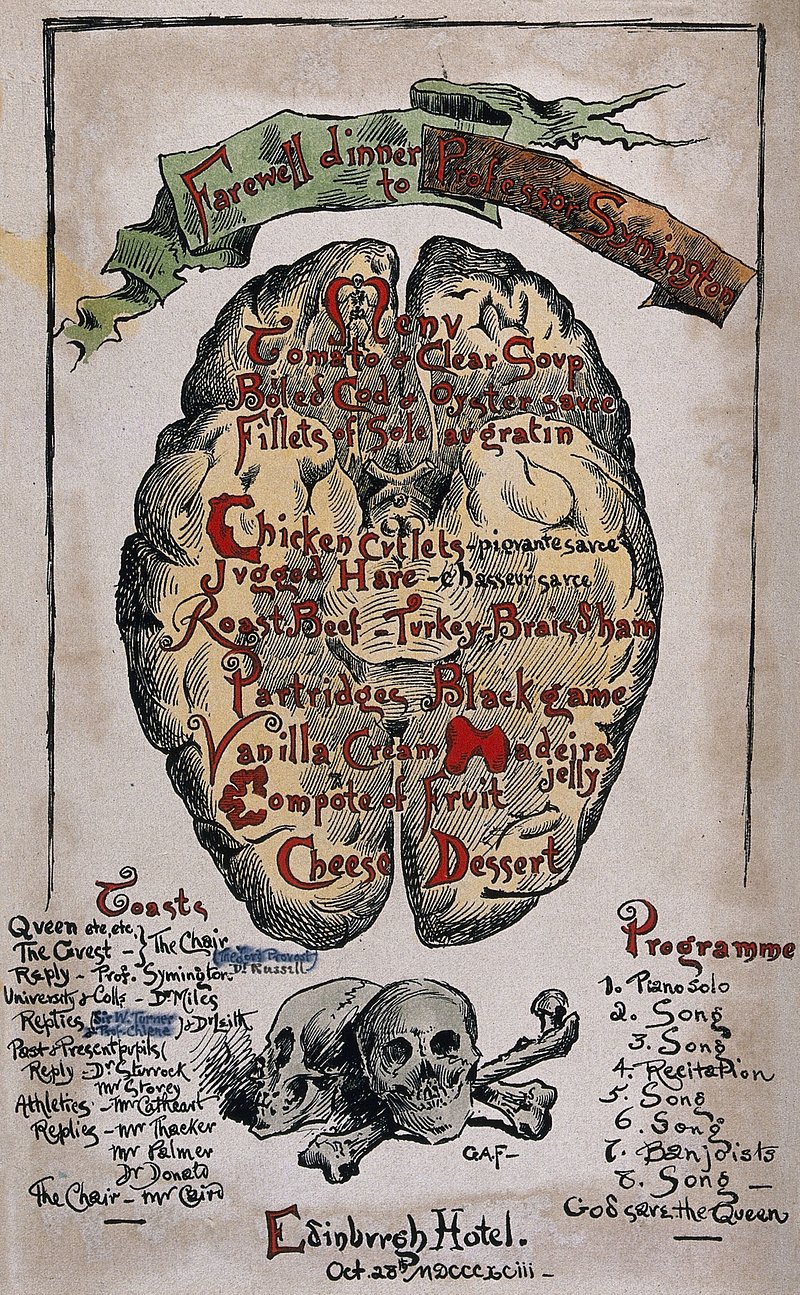 Farewell dinner
to Professor Symington
Menv
Tomato & Clear Sovp
Boiled Cod & Oyster savce
Fillets of Sole av gratin
Chicken Cvtlets - piqvante savce
Jvgged Hare - Chasseur savce
Roast Beef - Turkey - Braisd ham
Partridges Black game
Vanilla Cream Madeira
jelly
Compôte of Frvit
Cheese Dessert
Toasts
Qveen etc, etc,
The Gvest - } The Chair
The Lord Provost
Dr Russell
Reply - Prof. Symington.
University & Colls - Dr Miles
Replies Sir W. Turner
Prof. Chiene } & Dr Leith
Past & Present pupils
Reply - Dr Sturrock
Mr Storey
Athletics - Mr Cathcart
Replies - Mr Thacker
Mr Palmer
Dr Donald
The Chair - Mr Caird
Programme
1. Piano solo
2. Song
3. Song
4. Recitation
5. Song
6. Song
7. Banjoists
8. Song -
God save the Queen
G.A.F-
Edinbvrgh Hotel.
Oct. 28th MDCCCXCiii -